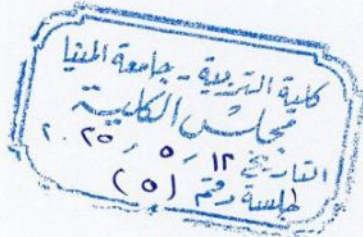 كلية التربية - جامعة المنيا
مجلس الكلية
التاريخ ١٢ / ٥ / ٢٠٢٥
جلسة رقم (٥)